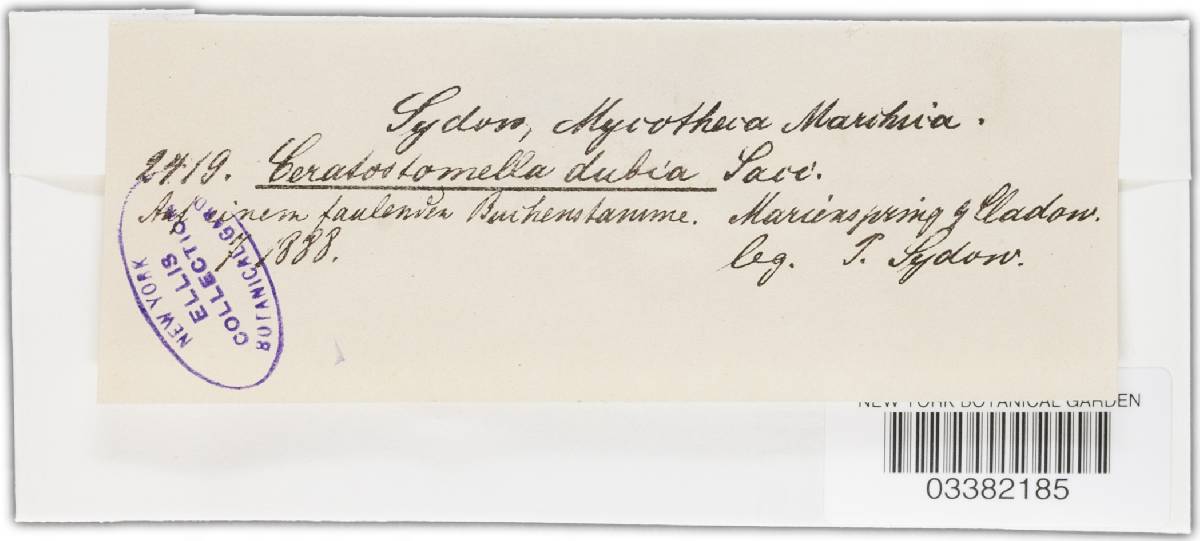 Sydow, Mycotheca Marchica.
2419. Ceratostomella dubia Sacc.
Auf einem faulenden Buchenstamme. Marienspring b Cladow.
7/ 1888. leg. P. Sydow.
NEW YORK
ELLIS
COLLECTION
BOTANICAL GARD
NEW YORK BOTANICAL GARDEN
03382185